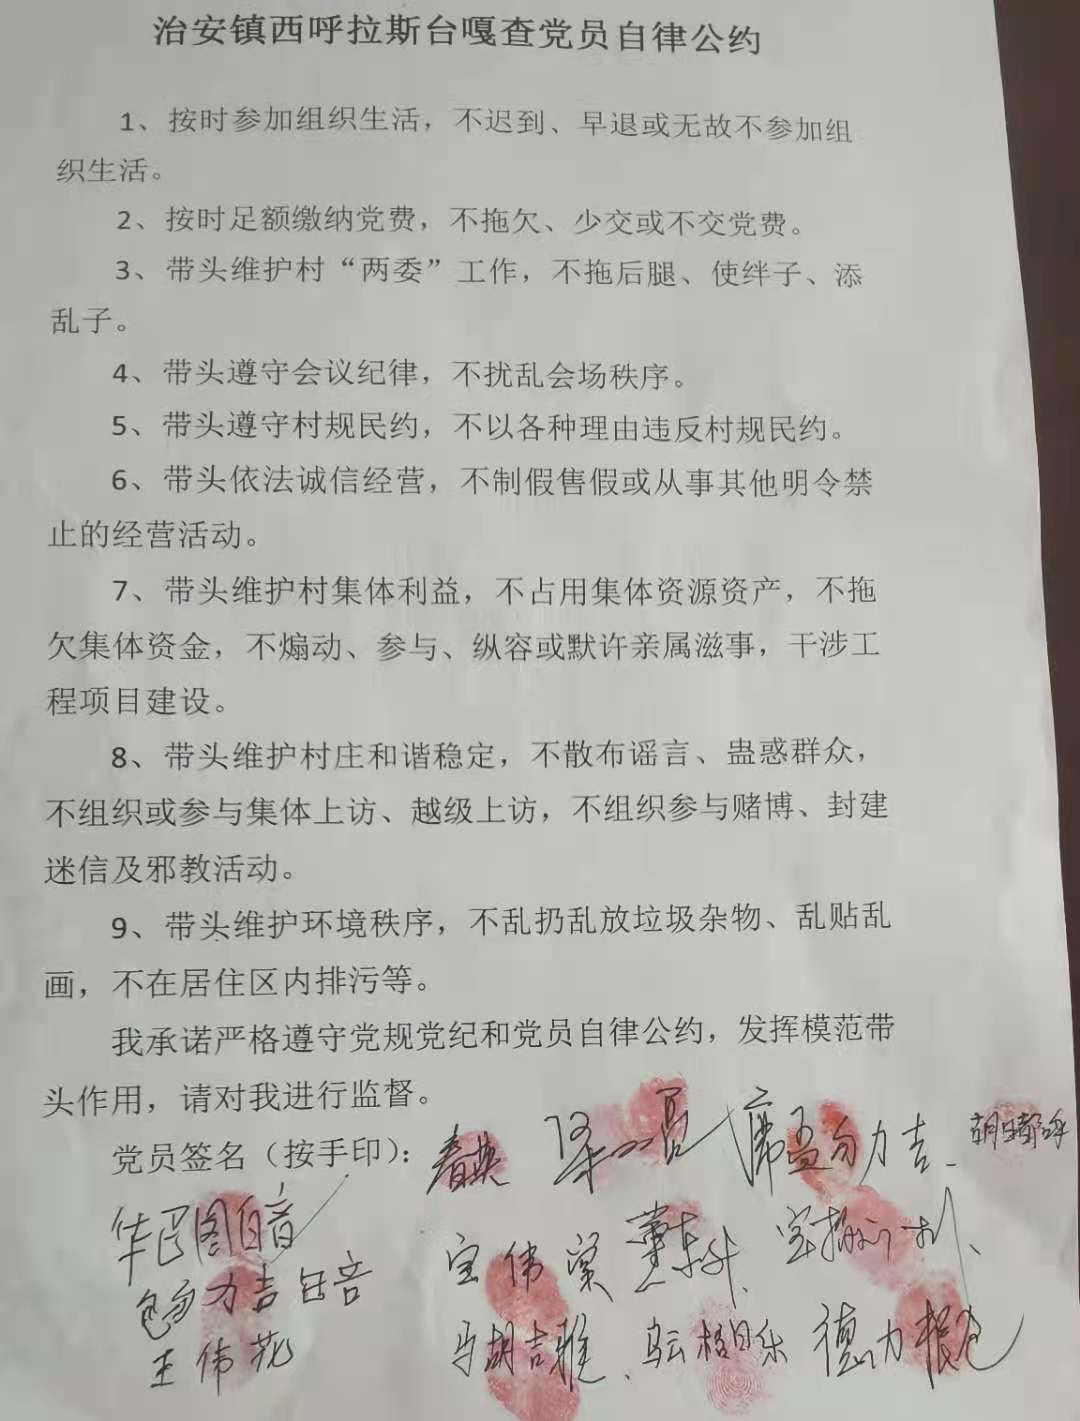 治安镇西呼拉斯台嘎查党员自律公约
1、按时参加组织生活，不迟到、早退或无故不参加组
织生活。
2、按时足额缴纳党费，不拖欠、少交或不交党费。
3、带头维护村“两委”工作，不拖后腿、使绊子、添
乱子。
4、带头遵守会议纪律，不扰乱会场秩序。
5、带头遵守村规民约，不以各种理由违反村规民约。
6、带头依法诚信经营，不制假售假或从事其他明令禁
止的经营活动。
7、带头维护村集体利益，不占用集体资源资产，不拖
欠集体资金，不煽动、参与、纵容或默许亲属滋事，干涉工
程项目建设。
8、带头维护村庄和谐稳定，不散布谣言、蛊惑群众，
不组织或参与集体上访、越级上访，不组织参与赌博、封建
迷信及邪教活动。
9、带头维护环境秩序，不乱扔乱放垃圾杂物、乱贴乱
画，不在居住区内排污等。
我承诺严格遵守党规党纪和党员自律公约，发挥模范带
头作用，请对我进行监督。
党员签名（按手印）：春英
宝伟
包勿力吉白音
王伟花 马胡吉雅、乌云格日乐 德力根仓